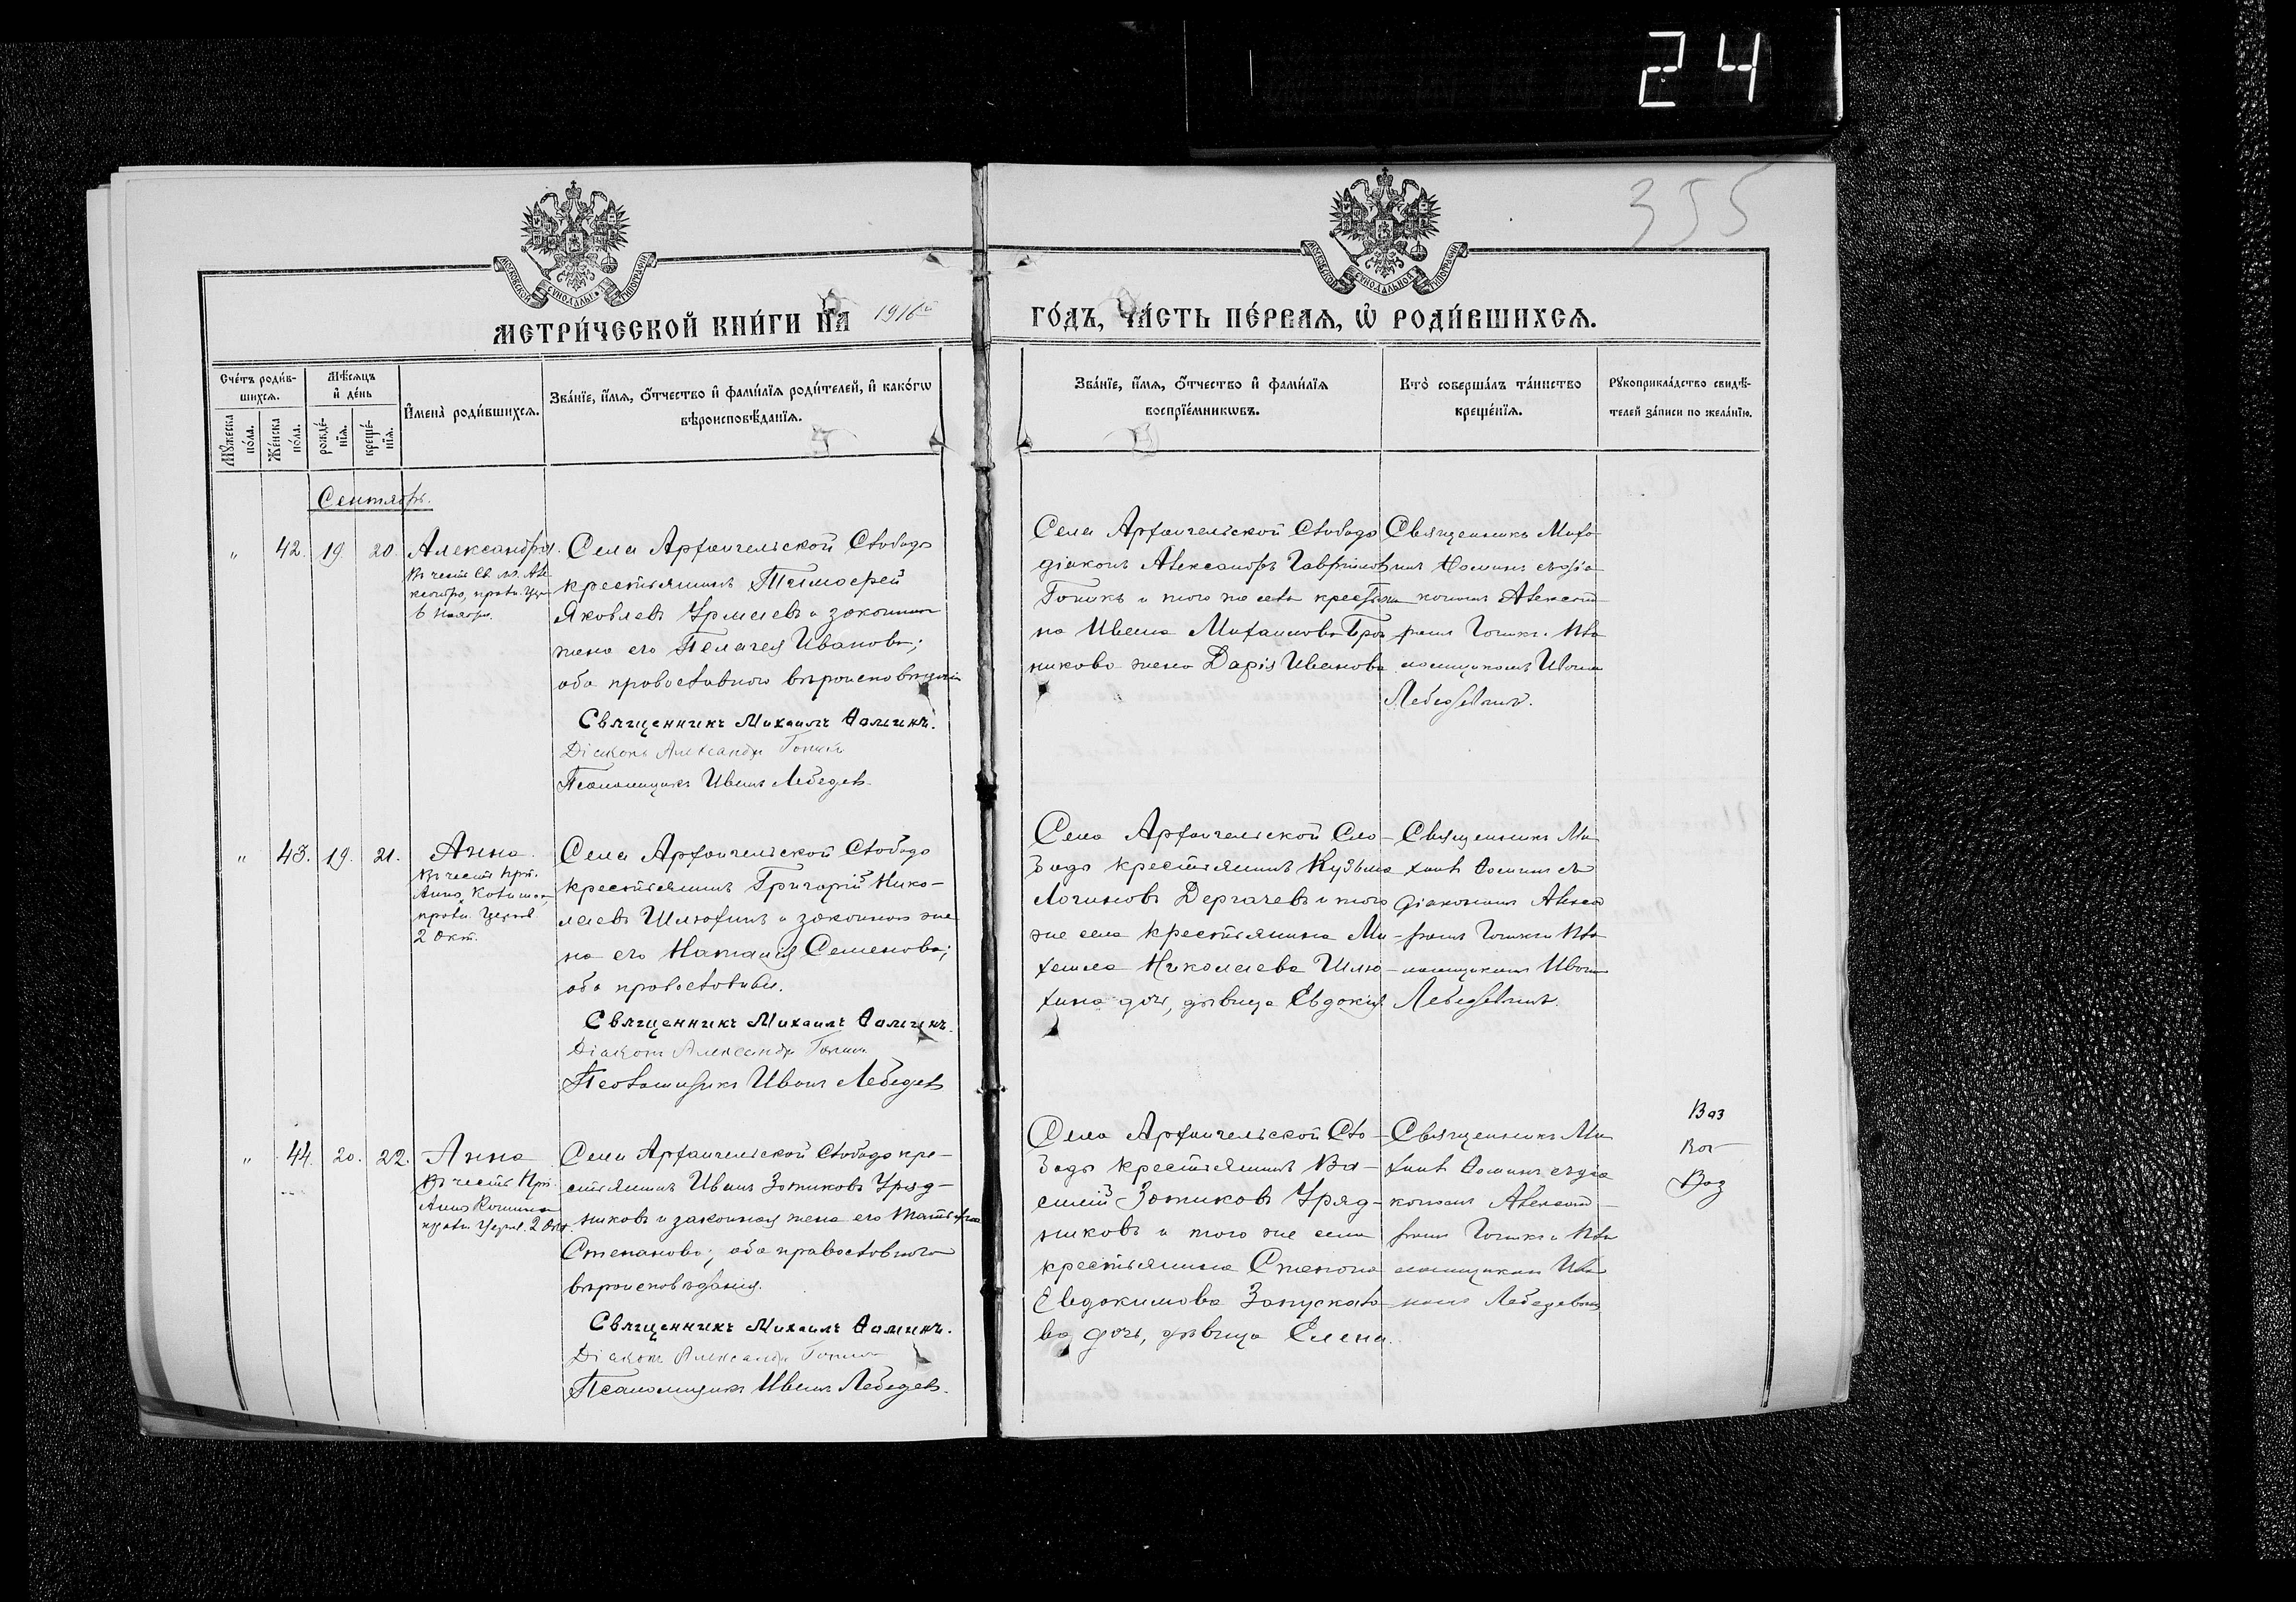 24
355
МОСКОВСКОЙ СѴНОДАЛЬНОЙ ТИПОГРАФІИ
МОСКОВСКОЙ СѴНОДАЛЬНОЙ ТИПОГРАФІИ
МЕТРИ́ЧЕСКОЙ КНИ́ГИ НА 1916й
ГО́ДЪ, ЧА́СТЬ ПЕ́РВАЯ, Ѡ РОДИ́ВШИХСЯ.
Сче́тъ роди́в-
шихся.
Мꙋ́жеска по́ла.
Же́нска по́ла.
Мѣ́сяцъ
и҆ де́нь
рожде́-
нїя.
креще́-
нїя.
И҆мена̀ роди́вшихся.
Зва́нїе, и҆́мя, ѻ҆́тчество и҆ фами́лїя роди́телей, и҆ како́гѡ
вѣроисповѣ́данїя.
Зва́нїе, и҆́мя, ѻ҆́тчество и҆ фами́лїя
воспрїе́мникѡвъ.
Кто̀ соверша́лъ та́инство
креще́нїя.
Рꙋкоприкла́дство свидѣ́-
телей за́писи по жела́нїю.
Сентябрь.
" 42. 19. 20. Александра.
Въ честь Св. м. Але
6 Ноября.
Села Архангельской Слободы
крестьянинъ Тимофей
Яковлевъ и законная
жена его Пелагея Иванова;
оба православного вѣроисповѣданія
Священникъ Михаилъ Ѳоминъ.
Діаконъ Александръ
Псаломщикъ Иванъ Лебедев
Села Архангельской Слободы
діаконъ Александръ Гаврииловъ
и того же села крестьяни
на Ивана Михаилова
никова жена Дарія Иванова
Священникъ Миха
илъ Ѳоминъ съ діа
кономъ Алексан
ломщикомъ Иваном
Лебедевымъ.
" 43. 19. 21. Анна.
Въ честь прп.
Анны,
празн. Церков
2 Окт.
Села Архангельской Слободы
крестьянинъ Григорій Нико-
лаевъ Шлюхинъ и законная же
на его Наталія Семенова;
оба православные.
Священникъ Михаилъ Ѳоминъ.
Діаконъ Александръ
Псаломщикъ Иванъ Лебедев
Села Архангельской Сло-
боды крестьянинъ Кузьма
Логиновъ Дергачевъ и того
же села крестьянина Ми-
хаила Николаева Шлю-
хина дочь, дѣвица Евдокія
Священникъ Ми
хаилъ Ѳоминъ съ
діакономъ Алекса
ломщикомъ Иваном
Лебедевымъ.
" 44. 20. 22. Анна
Въ честь Прп.
Анны
празн. Церк. 2 Окт.
Села Архангельской Слободы кре-
стьянинъ Иванъ Зотиковъ Уряд-
никовъ и законная жена его
Степанова; оба православного
вѣроисповѣданія.
Священникъ Михаилъ Ѳоминъ.
Діаконъ Александръ
Псаломщикъ Иванъ Лебедев.
Села Архангельской Сло-
боды крестьянинъ Ва-
силій Зотиковъ Уряд-
никовъ и того же села
крестьянина Степана
Евдокимова
ва дочь, дѣвица Елена.
Священникъ Ми
хаилъ Ѳоминъ съ діа
кономъ Алексан
ломщикомъ Ива
номъ Лебедевымъ